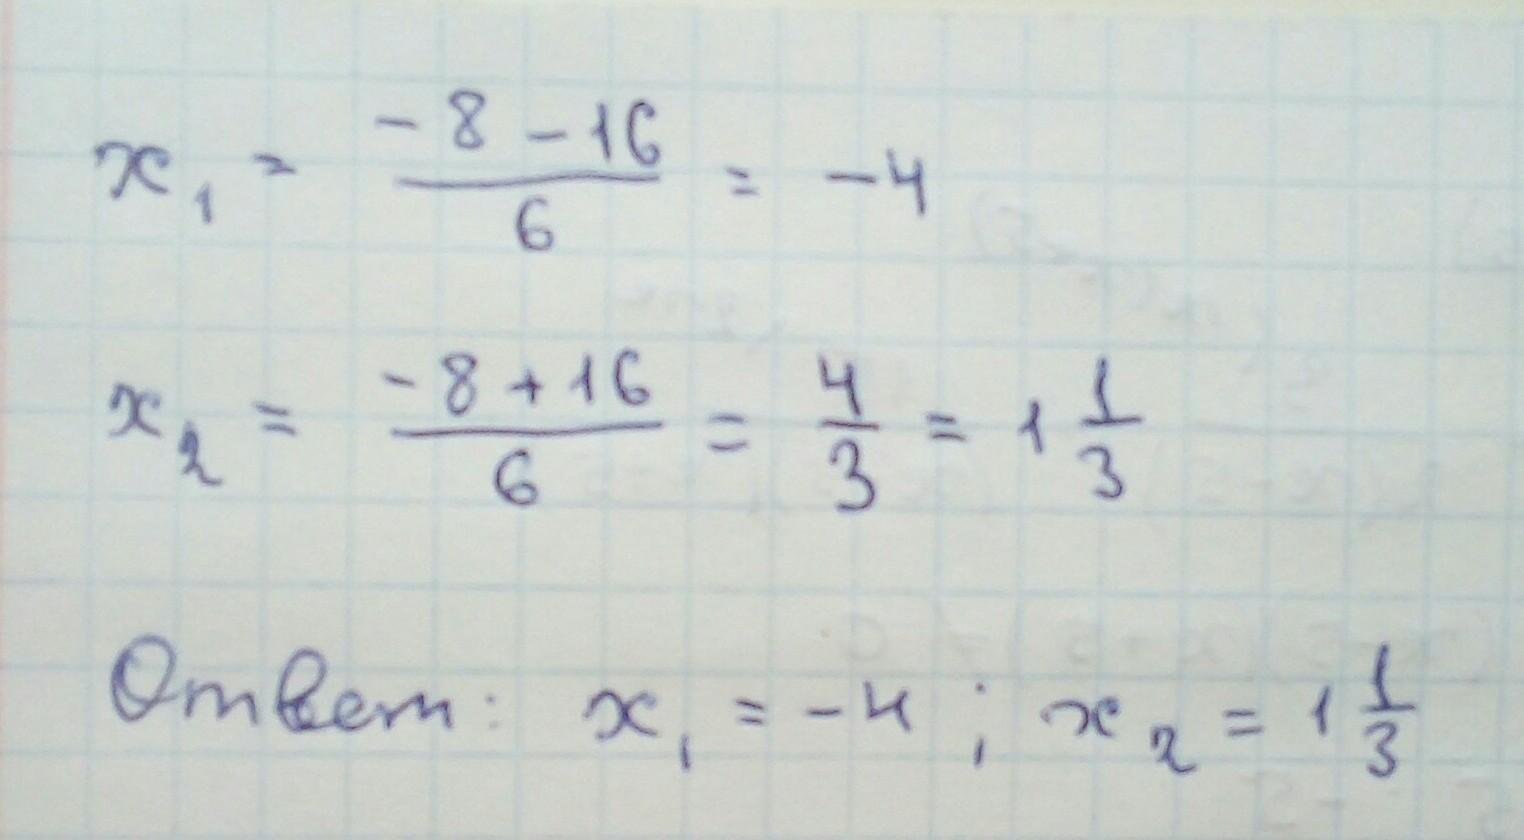 x₁ = (-8 - 16)/6 = -4
x₂ = (-8 + 16)/6 = 4/3 = 1 1/3
Ответ: x₁ = -4 ; x₂ = 1 1/3